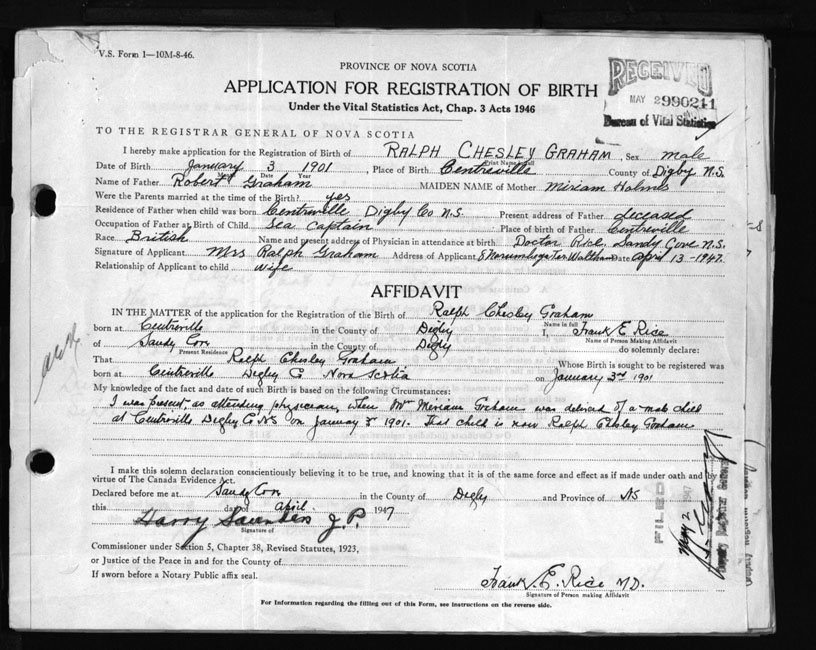 V.S. Form 1—10M-8-46.
PROVINCE OF NOVA SCOTIA
APPLICATION FOR REGISTRATION OF BIRTH
Under the Vital Statistics Act, Chap. 3 Acts 1946
RECEIVED
MAY 2 990211
Bureau of Vital Statistics
TO THE REGISTRAR GENERAL OF NOVA SCOTIA
I hereby make application for Registration of Birth of RALPH CHESLEY GRAHAM, Sex male
Print Name in full
Date of Birth January 3 1901, Place of Birth Centreville County of Digby N.S.
Month Date Year
Name of Father Robert Graham MAIDEN NAME of Mother Miriam Holmes
Were the Parents married at the time of the Birth? yes
Residence of Father when child was born Centreville Digby Co N.S. Present address of Father deceased
Occupation of Father at Birth of Child Sea Captain Place of birth of Father Centreville
Race British Name and present address of Physician in attendance at birth Doctor Rice, Sandy Cove N.S.
Signature of Applicant Mrs Ralph Graham Address of Applicant 8 Norumbega Ter Waltham Date April 13-1947
Relationship of Applicant to child wife
AFFIDAVIT
IN THE MATTER of the application for the Registration of Birth of Ralph Chesley Graham
Name in full
born at Centreville in the County of Digby I, Frank E. Rice
Name of Person Making Affidavit
of Sandy Cove in the County of Digby do solemnly declare:
Present Residence
That Ralph Chesley Graham Whose Birth is sought to be registered was
born at Centreville Digby Co Nova Scotia on January 3rd 1901
My knowledge of the fact and date of Birth is based on the following Circumstances:
I was present, as attending physician, when Mrs Miriam Graham was delivered of a male child
at Centreville Digby Co NS on January 3rd 1901. That child is now Ralph Chesley Graham
I make this solemn declaration conscientiously believing it to be true, and knowing that it is of the same force and effect as if made under oath and by
virtue of The Canada Evidence Act.
Declared before me at Sandy Cove in the County of Digby and Province of NS
this day of April 1947
Harry Saunders J.P.
Signature of
Commissioner under Section 5, Chapter 38, Revised Statutes, 1923,
or Justice of the Peace in and for the County of
If sworn before a Notary Public affix seal.
Frank E. Rice M.D.
Signature of Person making Affidavit
For Information regarding the filling out of this Form, see instructions on the reverse side.
FILED
May 2 1947